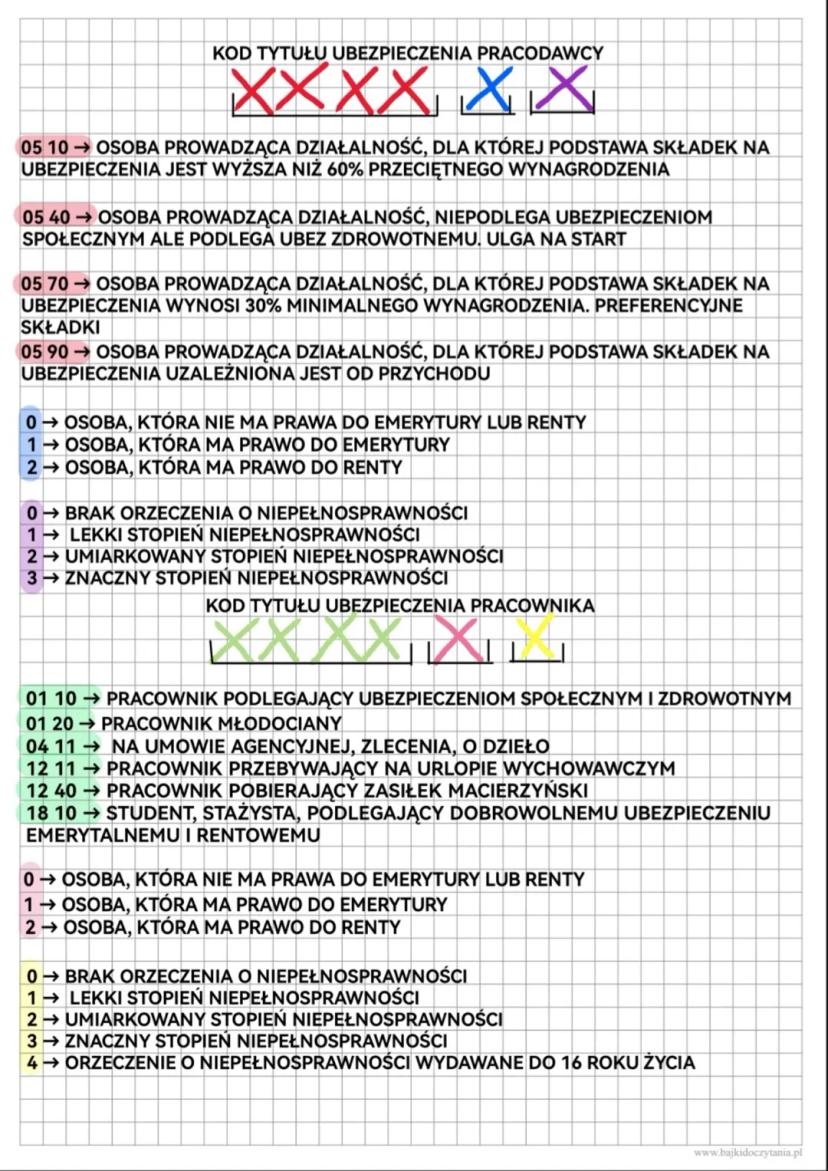 KOD TYTUŁU UBEZPIECZENIA PRACODAWCY
XX XX X X
05 10 → OSOBA PROWADZĄCA DZIAŁALNOŚĆ, DLA KTÓREJ PODSTAWA SKŁADEK NA
UBEZPIECZENIA JEST WYŻSZA NIŻ 60% PRZECIĘTNEGO WYNAGRODZENIA
05 40 → OSOBA PROWADZĄCA DZIAŁALNOŚĆ, NIEPODLEGA UBEZPIECZENIOM
SPOŁECZNYM ALE PODLEGA UBEZ ZDROWOTNEMU. ULGA NA START
05 70 → OSOBA PROWADZĄCA DZIAŁALNOŚĆ, DLA KTÓREJ PODSTAWA SKŁADEK NA
UBEZPIECZENIA WYNOSI 30% MINIMALNEGO WYNAGRODZENIA. PREFERENCYJNE
SKŁADKI
05 90 → OSOBA PROWADZĄCA DZIAŁALNOŚĆ, DLA KTÓREJ PODSTAWA SKŁADEK NA
UBEZPIECZENIA UZALEŻNIONA JEST OD PRZYCHODU
0 → OSOBA, KTÓRA NIE MA PRAWA DO EMERYTURY LUB RENTY
1 → OSOBA, KTÓRA MA PRAWO DO EMERYTURY
2 → OSOBA, KTÓRA MA PRAWO DO RENTY
0 → BRAK ORZECZENIA O NIEPEŁNOSPRAWNOŚCI
1 → LEKKI STOPIEŃ NIEPEŁNOSPRAWNOŚCI
2 → UMIARKOWANY STOPIEŃ NIEPEŁNOSPRAWNOŚCI
3 → ZNACZNY STOPIEŃ NIEPEŁNOSPRAWNOŚCI
KOD TYTUŁU UBEZPIECZENIA PRACOWNIKA
XX XX X X
01 10 → PRACOWNIK PODLEGAJĄCY UBEZPIECZENIOM SPOŁECZNYM I ZDROWOTNYM
01 20 → PRACOWNIK MŁODOCIANY
04 11 → NA UMOWIE AGENCYJNEJ, ZLECENIA, O DZIEŁO
12 11 → PRACOWNIK PRZEBYWAJĄCY NA URLOPIE WYCHOWAWCZYM
12 40 → PRACOWNIK POBIERAJĄCY ZASIŁEK MACIERZYŃSKI
18 10 → STUDENT, STAŻYSTA, PODLEGAJĄCY DOBROWOLNEMU UBEZPIECZENIU
EMERYTALNEMU I RENTOWEMU
0 → OSOBA, KTÓRA NIE MA PRAWA DO EMERYTURY LUB RENTY
1 → OSOBA, KTÓRA MA PRAWO DO EMERYTURY
2 → OSOBA, KTÓRA MA PRAWO DO RENTY
0 → BRAK ORZECZENIA O NIEPEŁNOSPRAWNOŚCI
1 → LEKKI STOPIEŃ NIEPEŁNOSPRAWNOŚCI
2 → UMIARKOWANY STOPIEŃ NIEPEŁNOSPRAWNOŚCI
3 → ZNACZNY STOPIEŃ NIEPEŁNOSPRAWNOŚCI
4 → ORZECZENIE O NIEPEŁNOSPRAWNOŚCI WYDAWANE DO 16 ROKU ŻYCIA
www.bajkidoczytania.pl